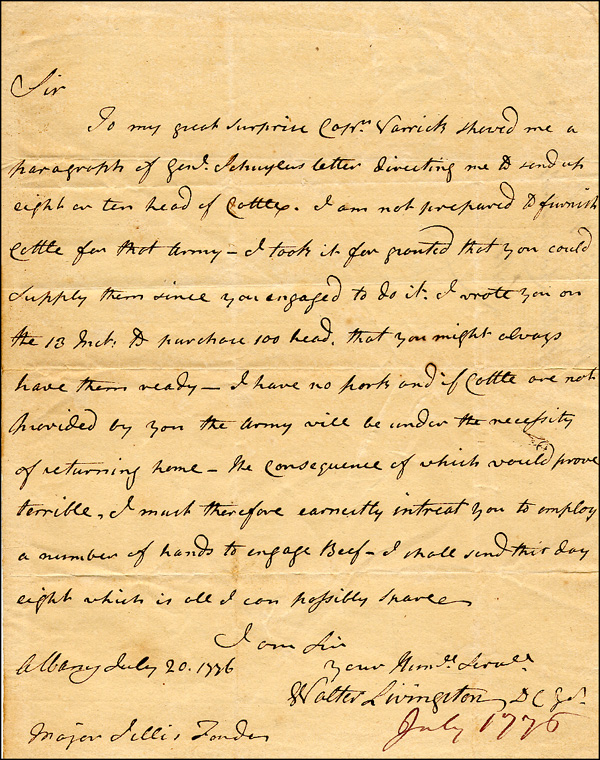 Sir
To my great Surprise Capt.n Varrick shewed me a
paragraph of Gen.l Schuylers letter directing me to send up
eight or ten head of Cattle. I am not prepared to furnish
Cattle for that Army – I took it for granted that you could
Supply them since you engaged to do it. I wrote you on
the 13 Inst: to purchase 100 head, that you might always
have them ready – I have no pork and if Cattle are not
provided by you the Army will be under the necessity
of returning home – the Consequence of which would prove
terrible, I must therefore earnestly intreat you to employ
a number of hands to engage Beef – I shall send this day
eight which is all I can possibly Spare
I am Sir
Albany July 20. 1776
Your Hum.l Serv.t
Walter Livingston D C G.l
July 1776
Major Jellis Fonda